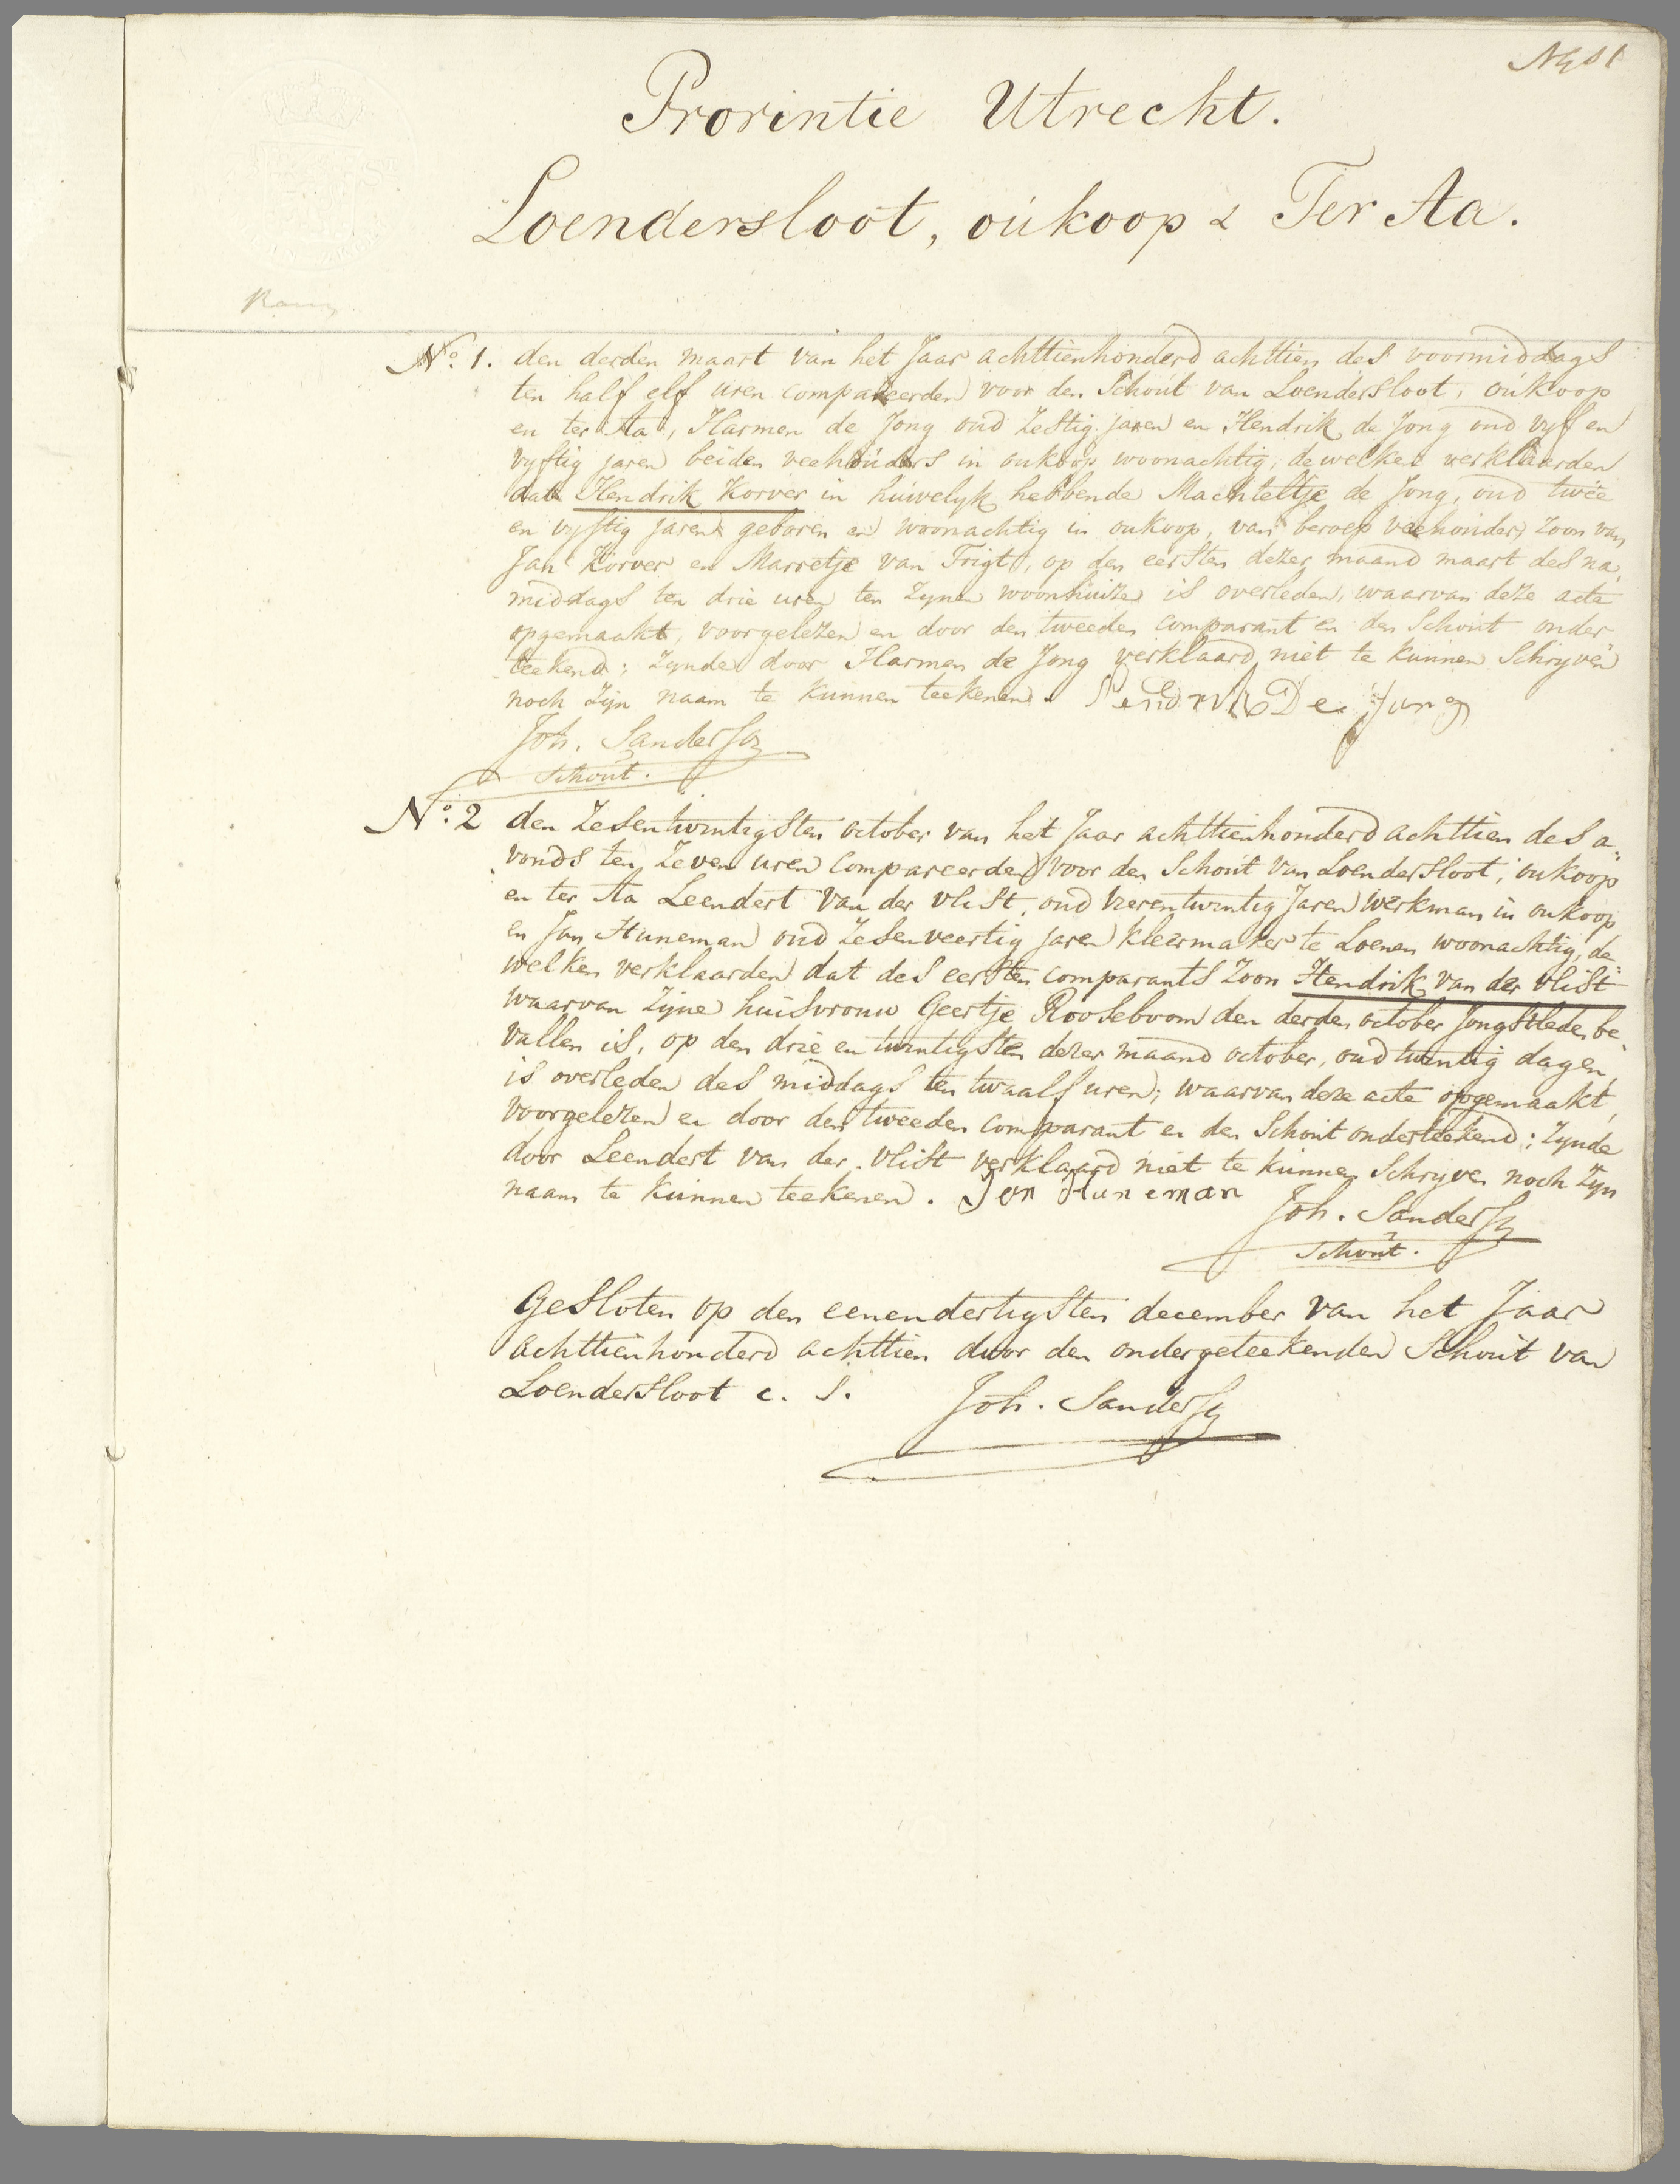 Provintie Utrecht.
Loendersloot, oukoop & Ter Aa.
No. 1. den derden maart van het Jaar achttienhonderd achttien des voormiddags
ten half elf uren compareerden voor den Schout van Loendersloot, oukoop
en ter Aa, Harmen de Jong oud zestig jaren en Hendrik de Jong oud vyf en
vyftig jaren beiden veehouders in oukoop woonachtig, dewelken verklaarden
dat Hendrik Korver in huwelyk hebbende Machteltje de Jong, oud twee
en vyftig jaren geboren en woonachtig in oukoop, van beroep veehouder, zoon van
Jan Korver en Marretje van Trigt, op den eersten dezer maand maart des na,
middags ten drie uren ten zynen woonhuize is overleden, waarvan deze acte
opgemaakt, voorgelezen en door den tweeden comparant en den Schout onder
teekend; zynde door Harmen de Jong verklaard niet te kunnen Schryven
noch zijn naam te kunnen teekenen. Hendrik De Jong
Joh. Sandersz
Schout.
No. 2 den zesentwintigsten october van het Jaar achttienhonderd achttien des a"
vonds ten zeven uren compareerden voor den Schout van Loendersloot, oukoop
en ter Aa Leendert van der vlist, oud vierentwintig Jaren werkman in oukoop
en Jan Huneman oud zesenveertig jaren kleermaker te Loenen woonachtig, de"
welken verklaarden dat des eersten comparants zoon Hendrik van der vlist
waarvan zijne huisvrouw Geertje Rooseboom den derden october Jongstleden be"
vallen is, op den drie en twintigsten dezer maand october, oud twintig dagen,
is overleden des middags ten twaalf uren; waarvan deze acte opgemaakt,
voorgelezen en door den tweeden comparant en den Schout onderteekend; zynde
door Leendert van der vlist verklaard niet te kunnen Schryven noch zyn
naam te kunnen teekenen. Jan Huneman
Joh. Sandersz
Schout.
Gesloten op den eenendertigsten december van het Jaar
achttienhonderd achttien door den ondergeteekenden Schout van
Loendersloot c. s. Joh. Sandersz